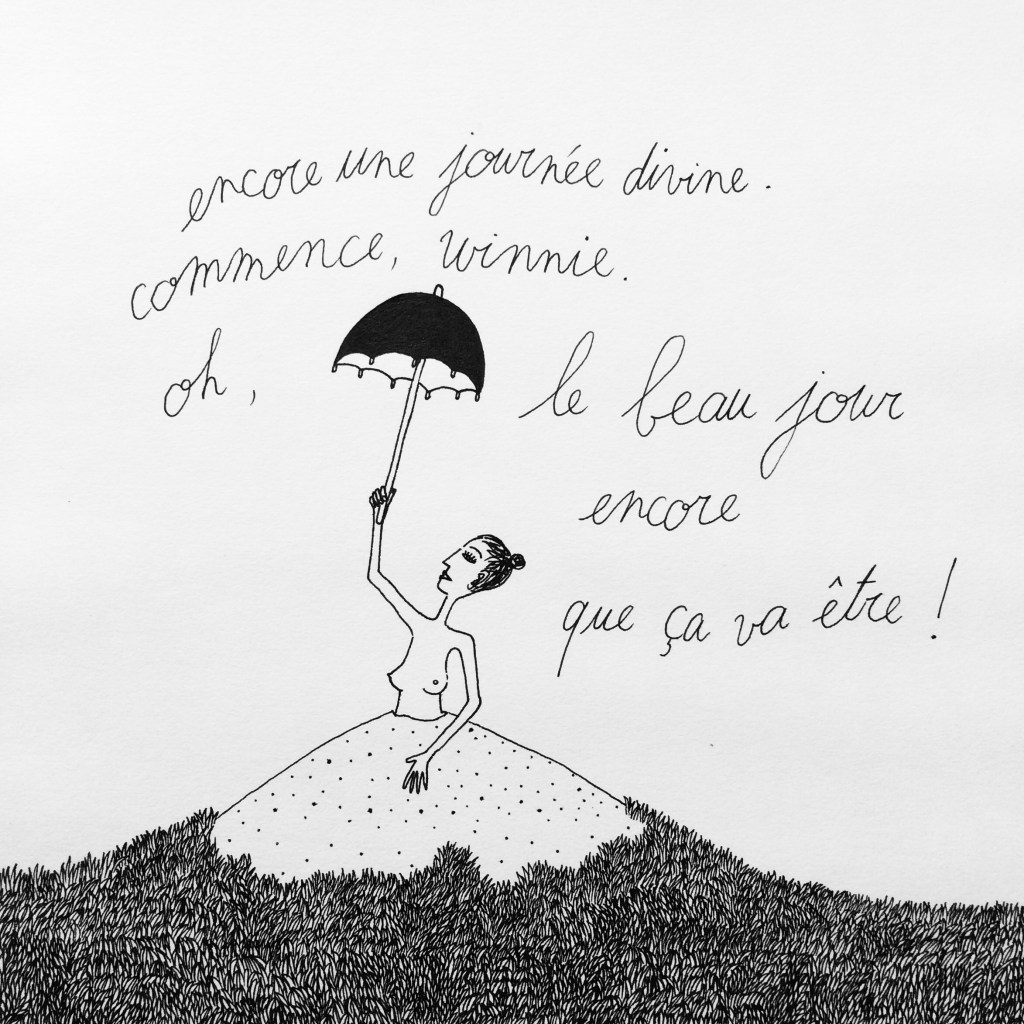 encore une journée divine.
commence, winnie.
oh, le beau jour
encore
que ça va être !